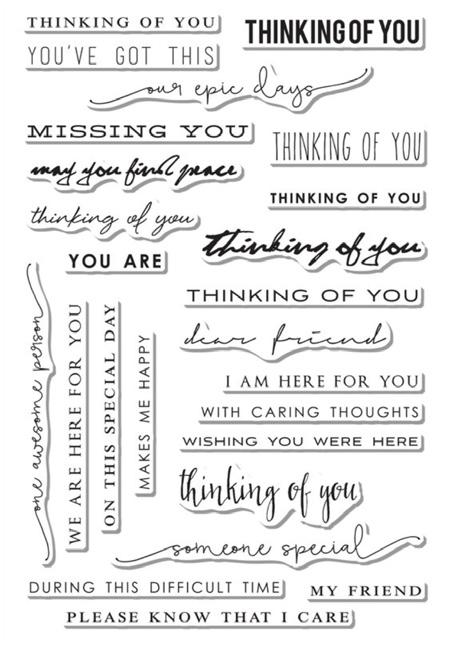 THINKING OF YOU
THINKING OF YOU
YOU'VE GOT THIS
our epic days
MISSING YOU
THINKING OF YOU
may you find peace
THINKING OF YOU
thinking of you
thinking of you
YOU ARE
THINKING OF YOU
dear friend
one awesome person
WE ARE HERE FOR YOU
ON THIS SPECIAL DAY
MAKES ME HAPPY
I AM HERE FOR YOU
WITH CARING THOUGHTS
WISHING YOU WERE HERE
thinking of you
someone special
DURING THIS DIFFICULT TIME
MY FRIEND
PLEASE KNOW THAT I CARE